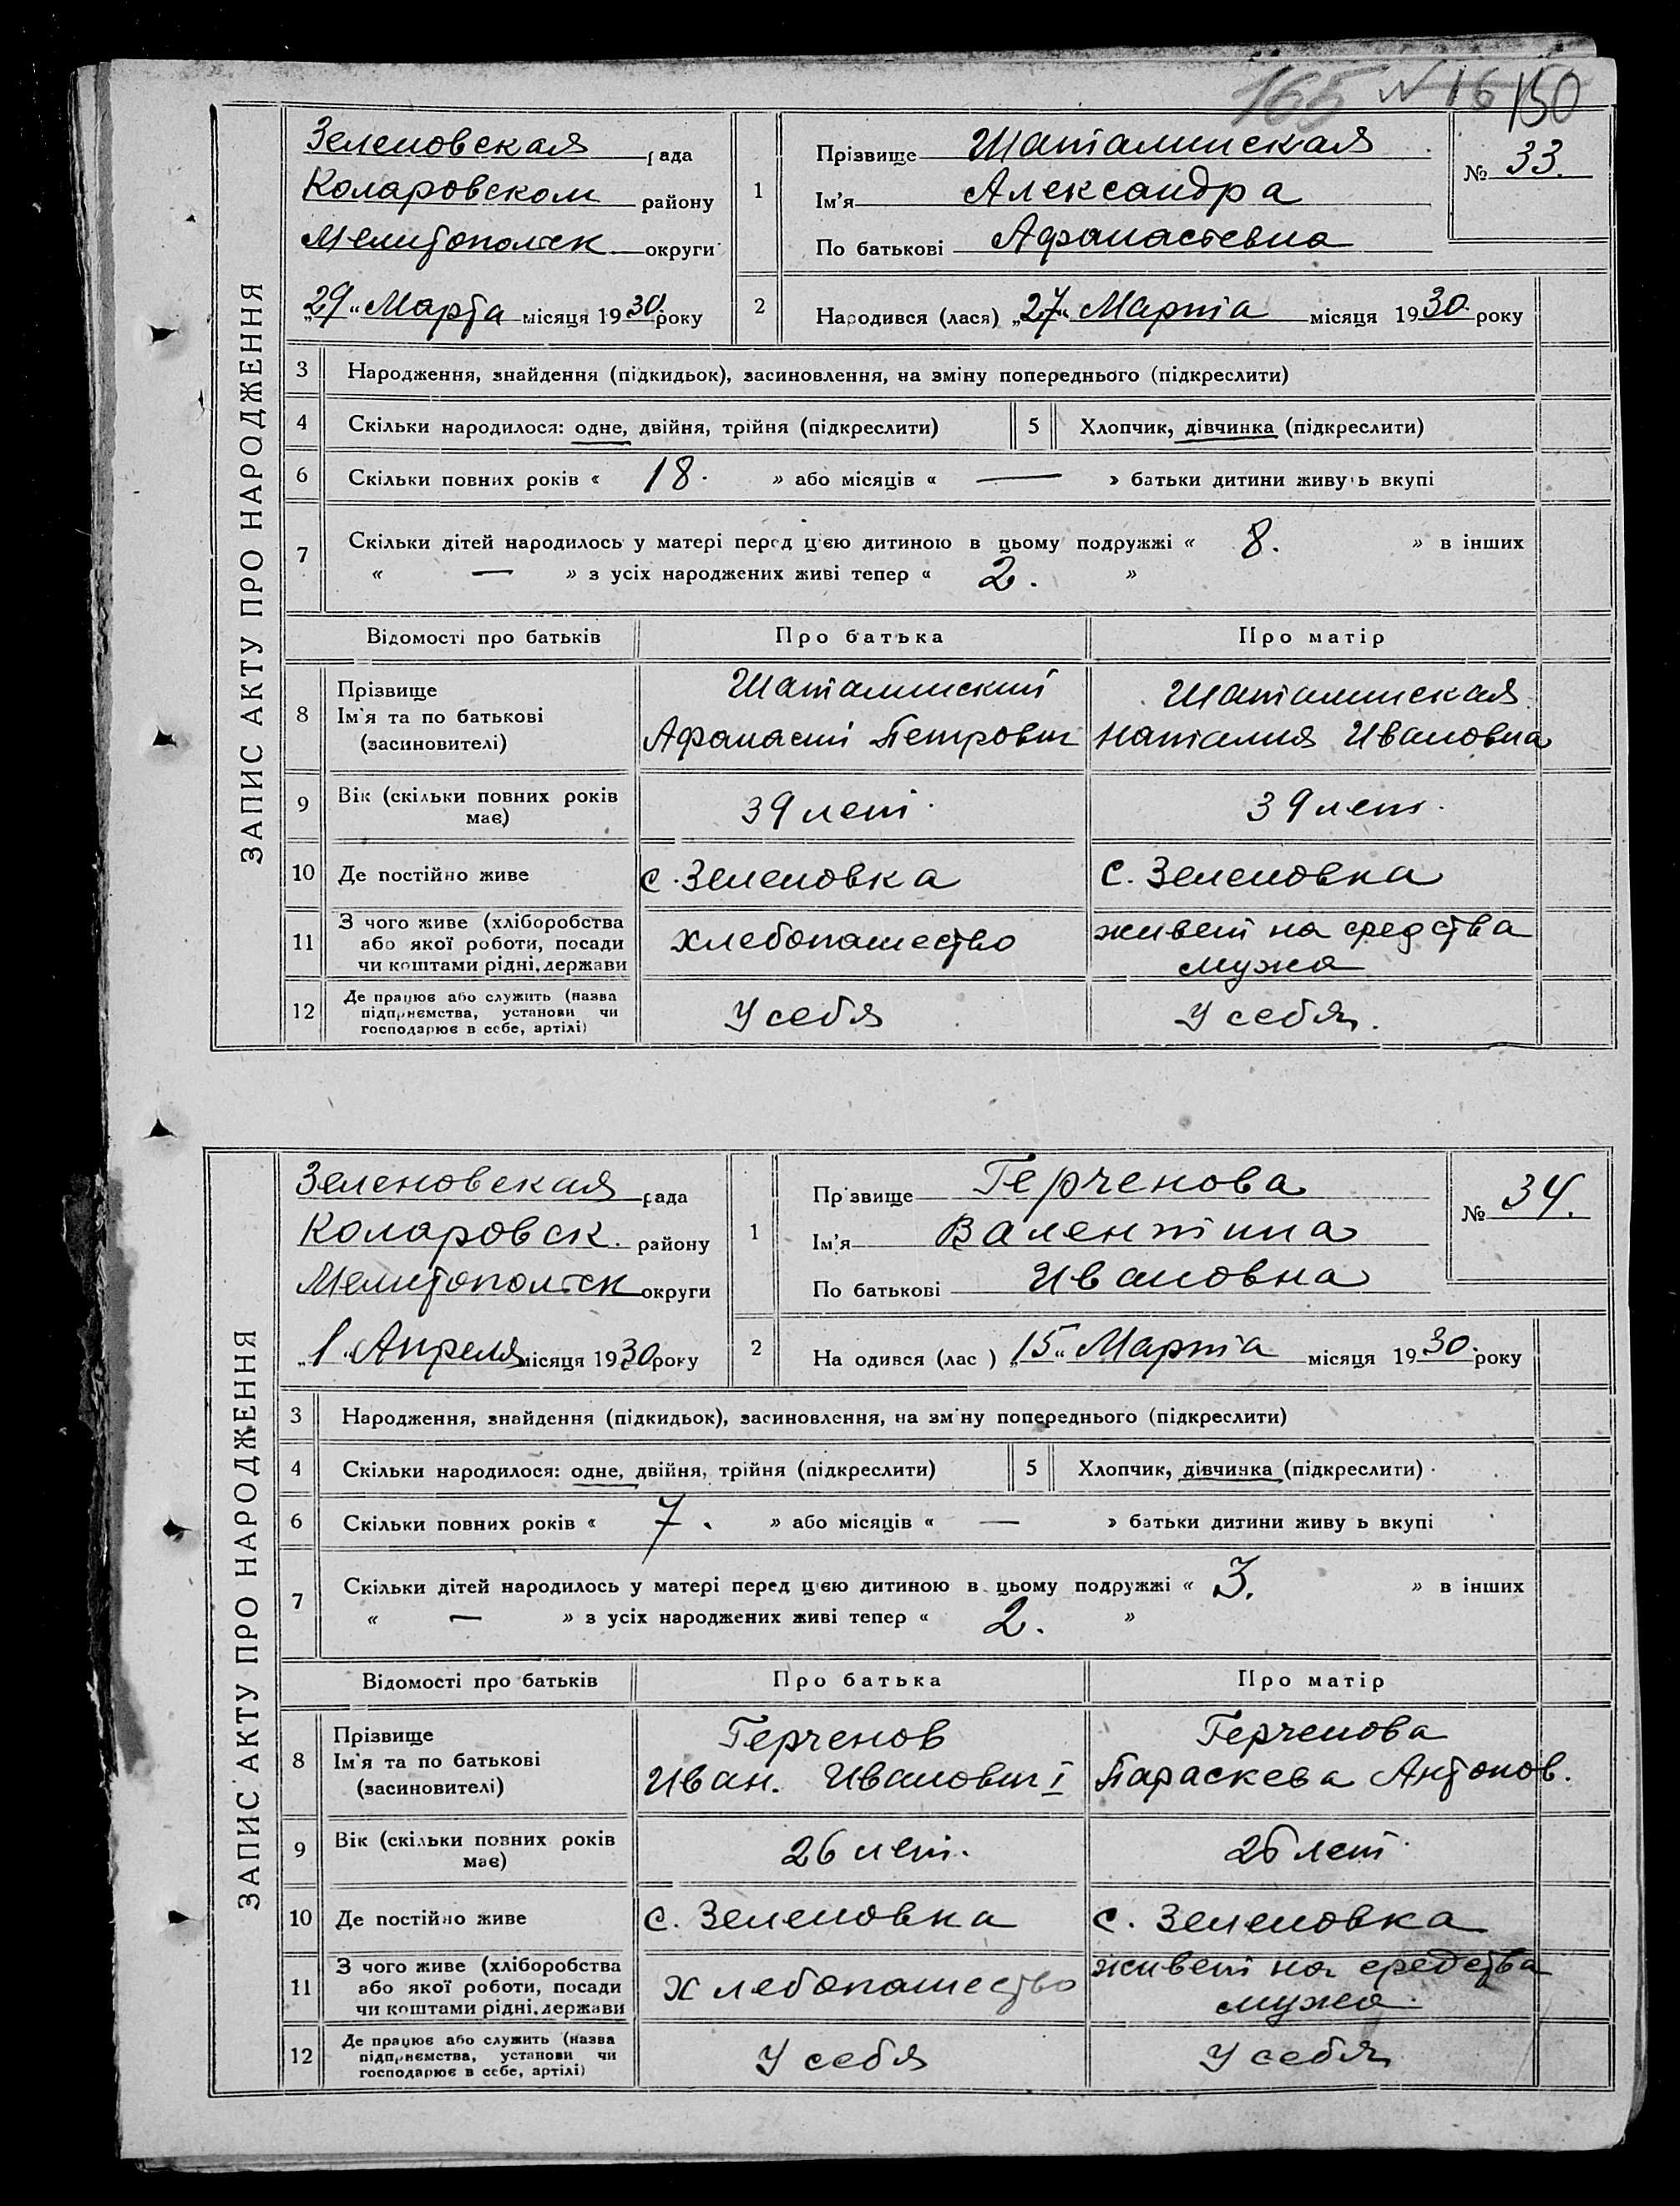 165 N 16 150
ЗАПИС АКТУ ПРО НАРОДЖЕННЯ
Зеленовская рада
Коларовском району
Мелитопольск округи
„29“ Марта місяця 1930 року
1
Прізвище Шаталинская
Ім'я Александра
По батькові Афанасьевна
№ 33.
2
Народився (лася) „27“ Марта місяця 1930 року
3 Народження, знайдення (підкидьок), засиновлення, на зміну попереднього (підкреслити)
4 Скільки народилося: одне, двійня, трійня (підкреслити) 5 Хлопчик, дівчинка (підкреслити)
6 Скільки повних років « 18. » або місяців « — » батьки дитини живу ь вкупі
7 Скільки дітей народилось у матері перед цією дитиною в цьому подружжі « 8. » в інших
« — » з усіх народжених живі тепер « 2. »
Відомості про батьків Про батька Про матір
8 Прізвище Шаталинский Шаталинская
Ім'я та по батькові Афанасий Петрович Наталия Ивановна
(засиновителі)
9 Вік (скільки повних років має) 39 лет. 39 лет.
10 Де постійно живе с. Зеленовка с. Зеленовка
11 З чого живе (хліборобства
або якої роботи, посади Хлебопашество живет на средства
чи коштами рідні, держави мужа
12 Де працює або служить (назва
підприємства, установи чи У себя У себя.
господарює в себе, артілі)
ЗАПИС АКТУ ПРО НАРОДЖЕННЯ
Зеленовская рада
Коларовск. району
Мелитопольск округи
„1“ Апреля місяця 1930 року
1
Пр звище Герченова
Ім'я Валентина
По батькові Ивановна
№ 34.
2
На одився (лас ) „15“ Марта місяця 1930. року
3 Народження, знайдення (підкидьок), засиновлення, на зм ну попереднього (підкреслити)
4 Скільки народилося: одне, двійня, трійня (підкреслити) 5 Хлопчик, дівчинка (підкреслити)
6 Скільки повних років « 7. » або місяців « — » батьки дитини живу ь вкупі
7 Скільки дітей народилось у матері перед цією дитиною в цьому подружжі « 3. » в інших
« — » з усіх народжених живі тепер « 2. »
Відомості про батьків Про батька Про матір
8 Прізвище Герченов Герченова
Ім'я та по батькові Иван. Иванович I Параскева Антонов.
(засиновителі)
9 Вік (скільки повних років має) 26 лет. 26 лет
10 Де постійно живе с. Зеленовка с. Зеленовка
11 З чого живе (хліборобства
або якої роботи, посади Хлебопашество живет на средства
чи коштами рідні, держави мужа.
12 Де працює або служить (назва
підприємства, установи чи У себя У себя
господарює в себе, артілі)